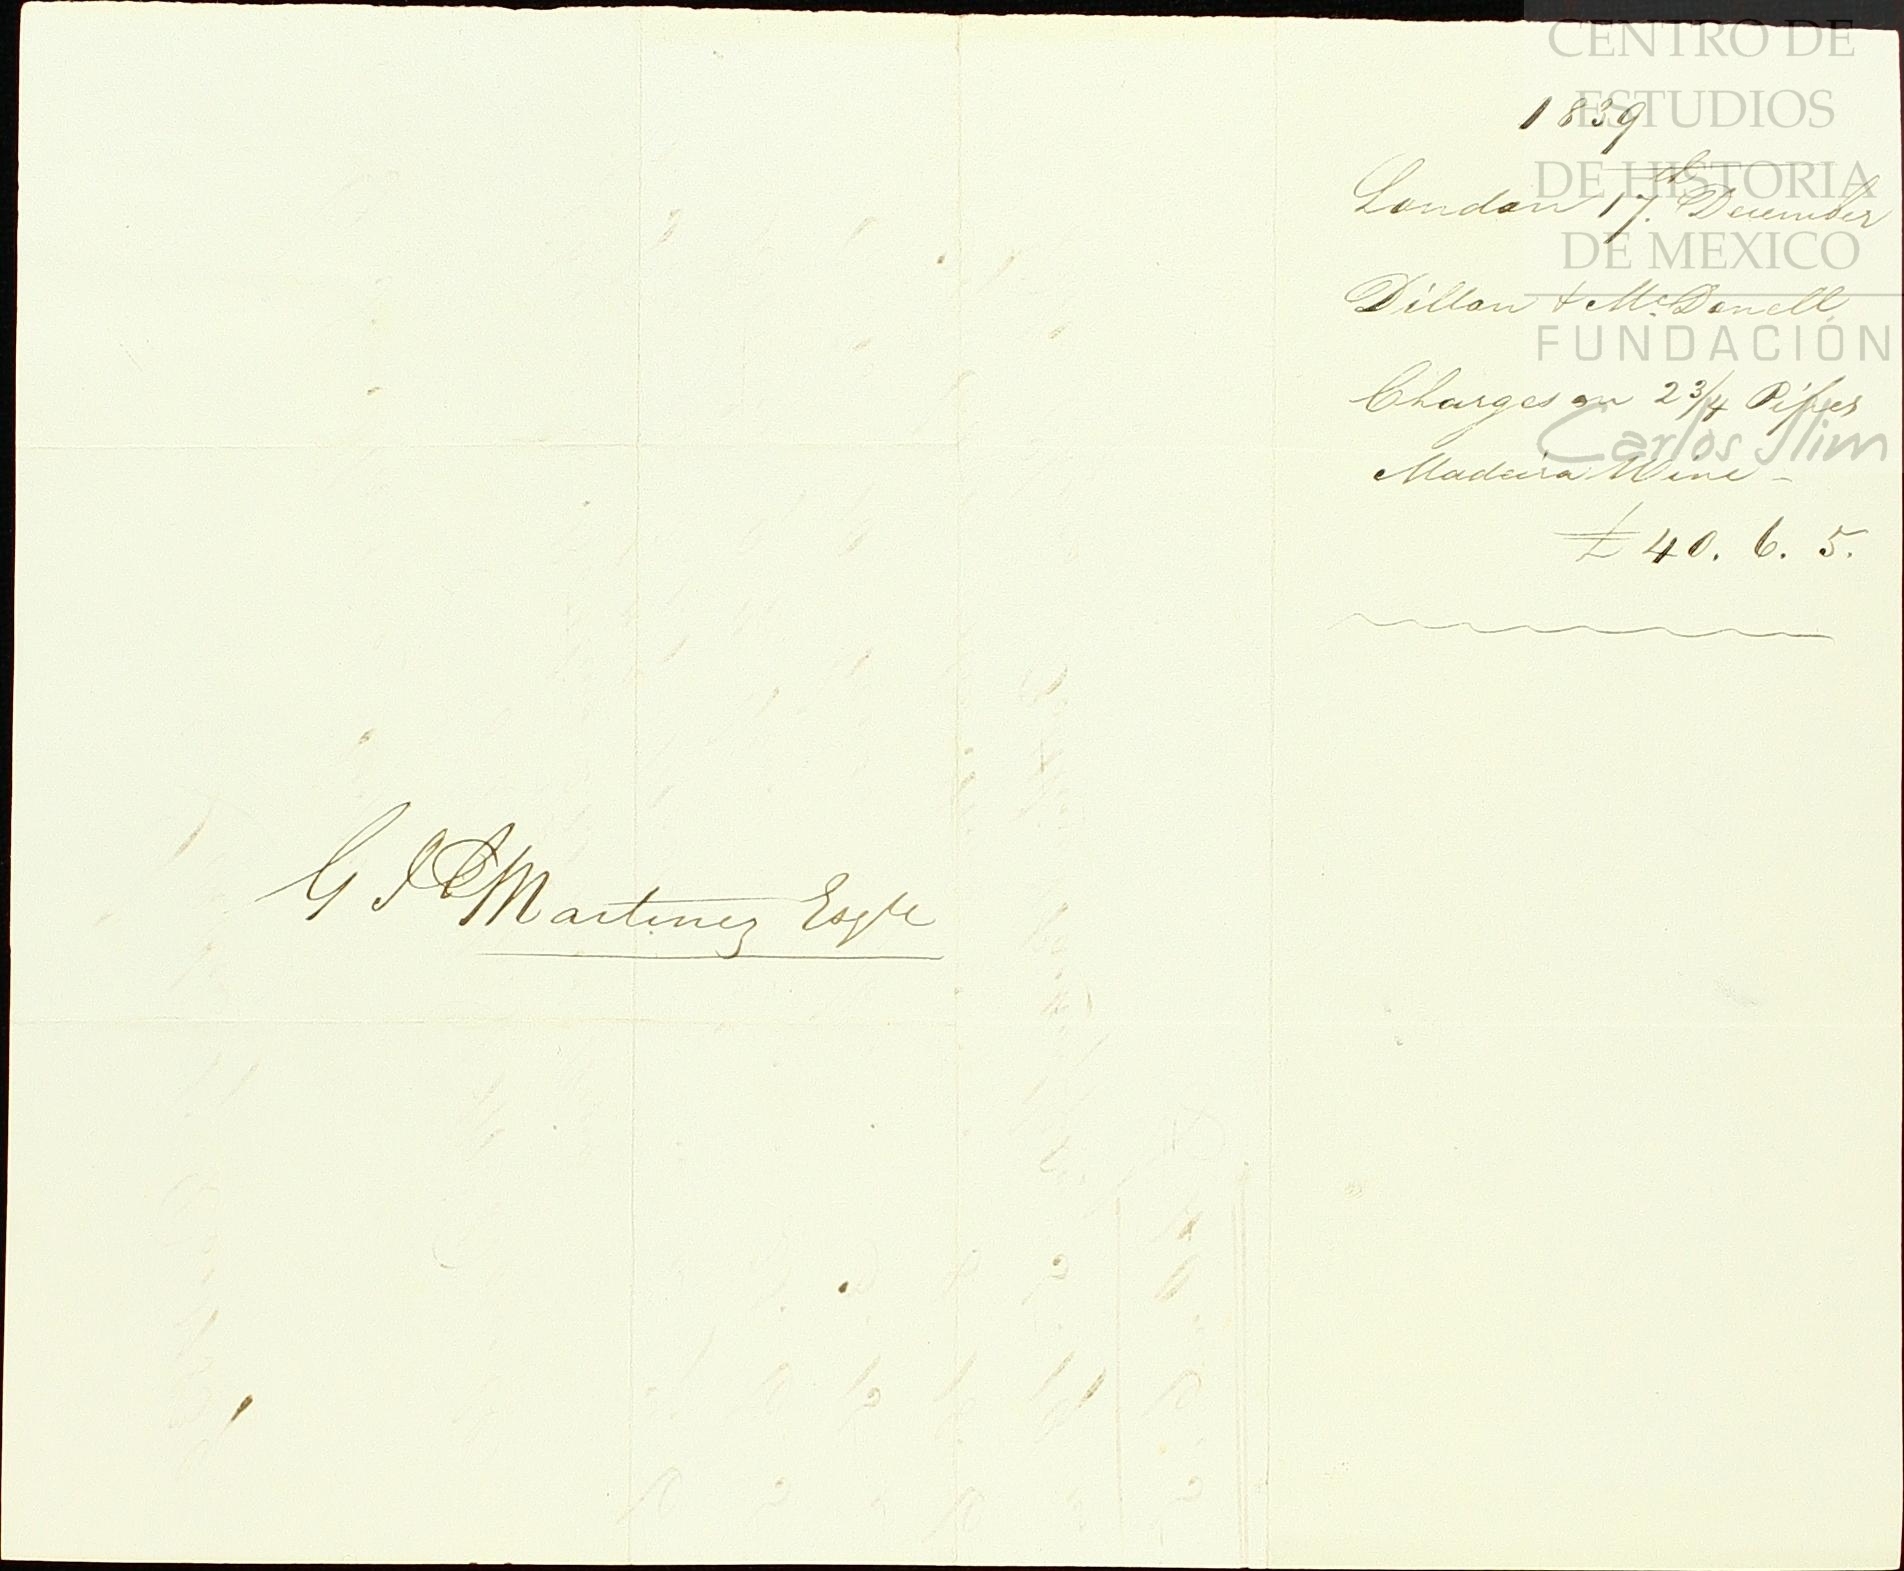 CENTRO DE
ESTUDIOS
DE HISTORIA
DE MEXICO
FUNDACIÓN
Carlos Slim
1839
London 17th December
Dillon & McDonell
Charges on 2 3/4 Pipes
Madeira Wine -
£ 40. 6. 5.
G J Martinez Esqre